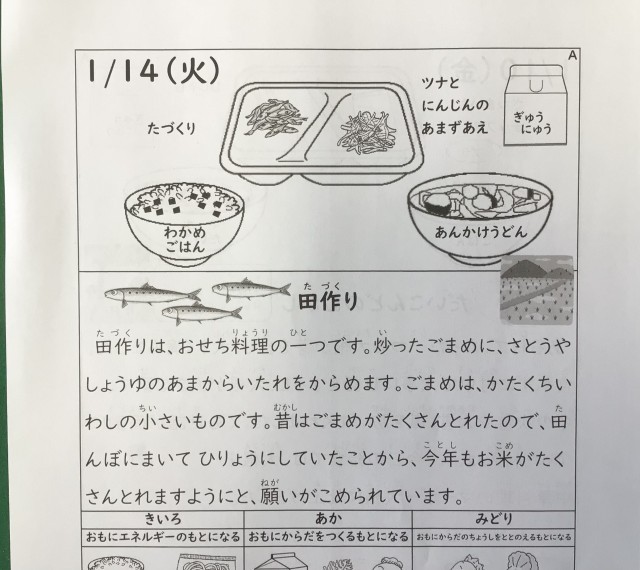 1/14(火)
A
たづくり
ツナと
にんじんの
あまずあえ
ぎゅう
にゅう
わかめ
ごはん
あんかけうどん
田作り
田作りは、おせち料理の一つです。炒ったごまめに、さとうや
しょうゆのあまからいたれをからめます。ごまめは、かたくちい
わしの小さいものです。昔はごまめがたくさんとれたので、田
んぼにまいて ひりょうにしていたことから、今年もお米がたく
さんとれますようにと、願いがこめられています。
きいろ あか みどり
おもにエネルギーのもとになる おもにからだをつくるもとになる おもにからだのちょうしをととのえるもとになる